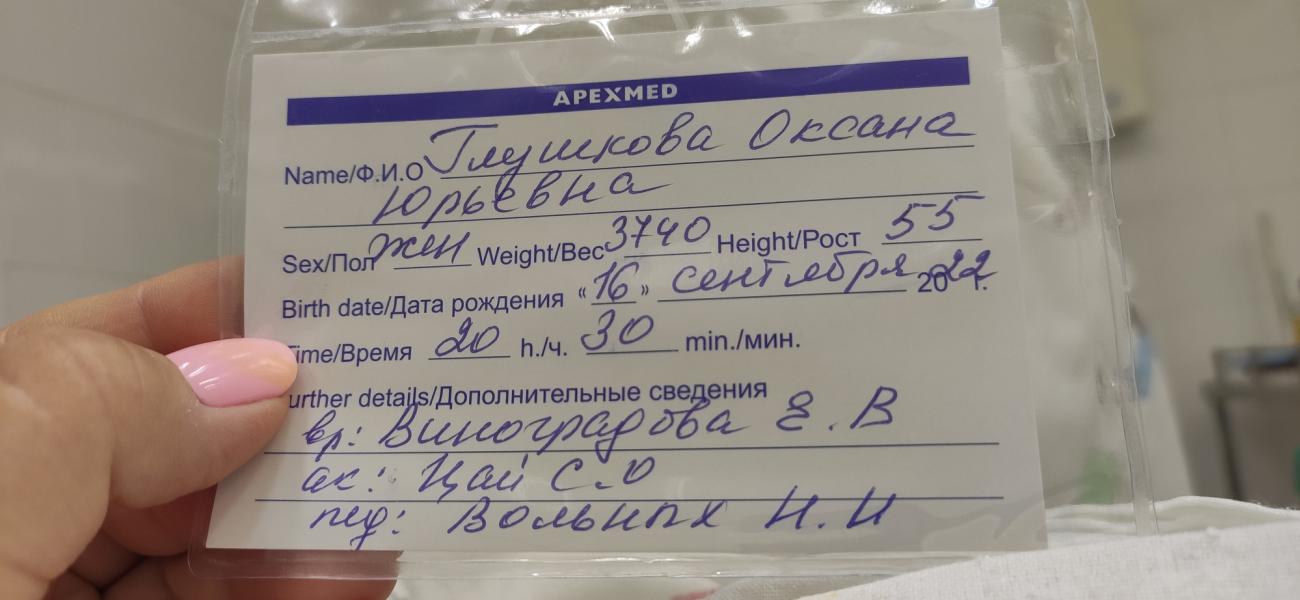 APEXMED
Name/Ф.И.О Глушкова Оксана
Юрьевна
Sex/Пол жен Weight/Вес 3740 Height/Рост 55
Birth date/Дата рождения «16» сентября 2022 г.
Time/Время 20 h./ч. 30 min./мин.
urther details/Дополнительные сведения
вр: Виноградова Е.В
ак: Цай С.О
пед: Вольных Н.И